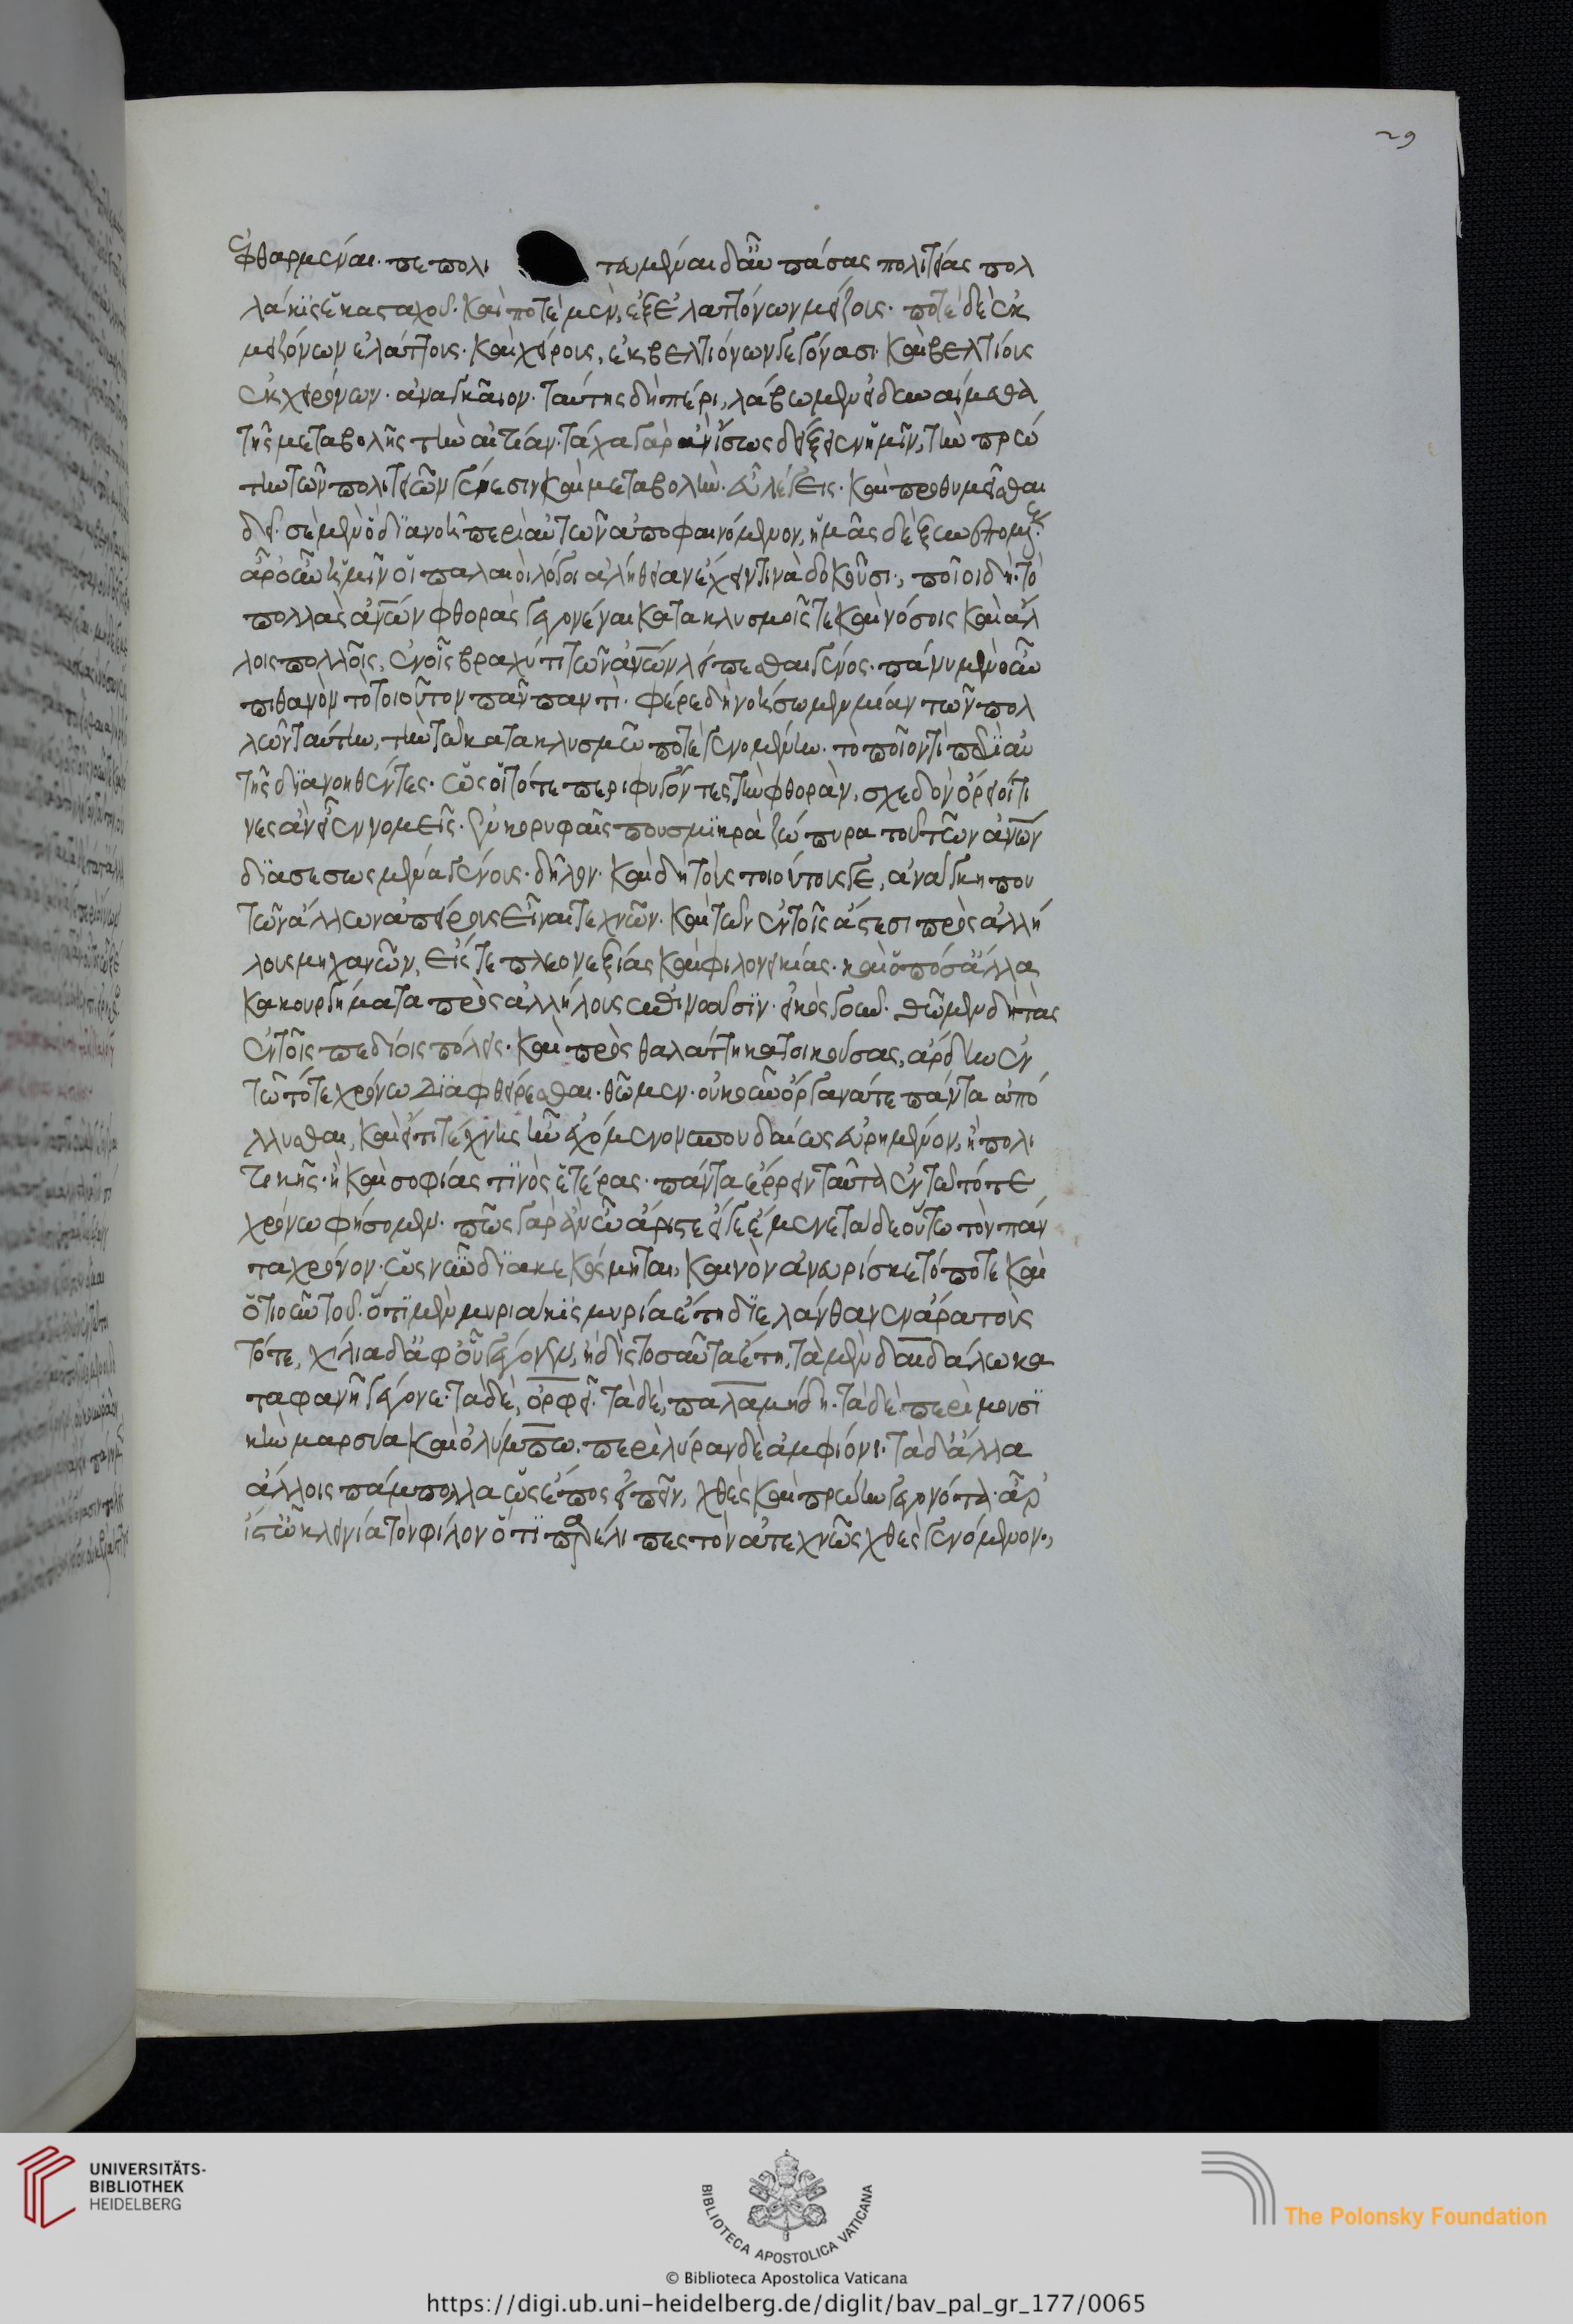 ἐφθαρμέναι· πεπολιτευμέναι δ' αὖ πάσας πολιτείας πολ
λάκις ἑκασταχοῦ· καὶ ποτὲ μὲν, ἐξ ἐλαττόνων μείζους· ποτὲ δὲ ἐκ
μειζόνων ἐλάττους· καὶ χείρους, ἐκ βελτιόνων γεγόνασι· καὶ βελτίους
ἐκ χειρόνων· ἀναγκαῖον· ταύτης δὴ πέρι, λάβωμεν εἰ δυναίμεθα
τῆς μεταβολῆς τὴν αἰτίαν· τάχα γὰρ ἂν ἴσως δείξειεν ἡμῖν, τὴν πρώ
την τῶν πολιτειῶν γένεσιν καὶ μεταβολήν· εὖ λέγεις· καὶ προθυμεῖσθαι
δεῖ· σὲ μὲν ὃ διανοῇ περὶ αὐτῶν ἀποφαινόμενον, ἡμᾶς δὲ ξυνεπομένους·
ἆρ' οὖν ὑμῖν οἱ παλαιοὶ λόγοι ἀλήθειαν ἔχειν τινὰ δοκοῦσι·, ποῖοι δή· τὸ
πολλὰς ἀν̅ων φθορὰς γεγονέναι κατακλυσμοῖς τε καὶ νόσοις καὶ ἄλ
λοις πολλοῖς, ἐν οἷς βραχύ τι τῶν ἀν̅ων λείπεσθαι γένος· πάνυ μὲν οὖν
πιθανὸν τὸ τοιοῦτον πᾶν παντὶ· φέρε δὴ νοήσωμεν μίαν τῶν πολ
λῶν ταύτην, τὴν τῷ κατακλυσμῷ ποτὲ γενομένην· τὸ ποῖόν τι περὶ αὐ
τῆς διανοηθέντες· ὡς οἱ τότε περιφυγόντες τὴν φθορὰν, σχεδὸν ὄρειοί τι
νες ἂν εἶεν νομεῖς· ἐν κορυφαῖς που σμικρὰ ζώπυρα τοῦ τῶν ἀν̅ων
διασεσωσμένα γένους· δῆλον· καὶ δὴ τοὺς τοιούτους γε, ἀνάγκη που
τῶν ἄλλων ἀπείρους εἶναι τεχνῶν· καὶ τῶν ἐν τοῖς ἄστεσι πρὸς ἀλλή
λους μηχανῶν, εἴς τε πλεονεξίας καὶ φιλονεικίας· καὶ ὁπόσ' ἄλλα
κακουργήματα πρὸς ἀλλήλους ἐπινοοῦσιν· εἰκὸς γοῦν· θῶμεν δὴ τὰς
ἐν τοῖς πεδίοις πόλεις· καὶ πρὸς θαλάττῃ κατοικούσας, ἄρδην ἐν
τῷ τότε χρόνῳ διαφθείρεσθαι· θῶμεν· οὐκοῦν ὄργανά τε πάντα ἀπό
λλυσθαι, καὶ εἴ τι τέχνης ἦν ἐχόμενον σπουδαίως εὑρημένον, ἢ πολι
τικῆς· ἢ καὶ σοφίας τινὸς ἑτέρας· πάντα ἔρρειν ταῦτα ἐν τῷ τότε
χρόνῳ φήσομεν· πῶς γὰρ ἂν ὦ ἄριστε εἴ γε ἔμενε τάδε οὕτω τὸν πάν
τα χρόνον· ὡς νῦν διακεκόσμηται, καινὸν ἀνευρίσκετό ποτε καὶ
ὁτιοῦν τοῦ· ὅτι μὲν μυριάκις μυρία ἔτη διελάνθανεν ἄρα τοὺς
τότε, χίλια δ' ἀφ' οὗ γέγονεν, ἢ δὶς τοσαῦτα ἔτη, τὰ μὲν δαιδάλῳ κα
ταφανῆ γέγονε· τὰ δὲ, ὀρφεῖ· τὰ δὲ, παλαμήδει· τὰ δὲ περὶ μουσι
κὴν μαρσύᾳ καὶ ὀλύμπῳ· περὶ λύραν δὲ ἀμφίονι· τὰ δ' ἄλλα
ἄλλοις πάμπολλα ὡς ἔπος εἰπεῖν, χθὲς καὶ πρώην γεγονότα· ἆρ'
ἴστ' ὦ κλεινία τὸν φίλον ὅτι παρέλιπες τὸν ἀτεχνῶς χθὲς γενόμενον·,
29
UNIVERSITÄTS-
BIBLIOTHEK
HEIDELBERG
BIBLIOTECA APOSTOLICA VATICANA
The Polonsky Foundation
© Biblioteca Apostolica Vaticana
https://digi.ub.uni-heidelberg.de/diglit/bav_pal_gr_177/0065